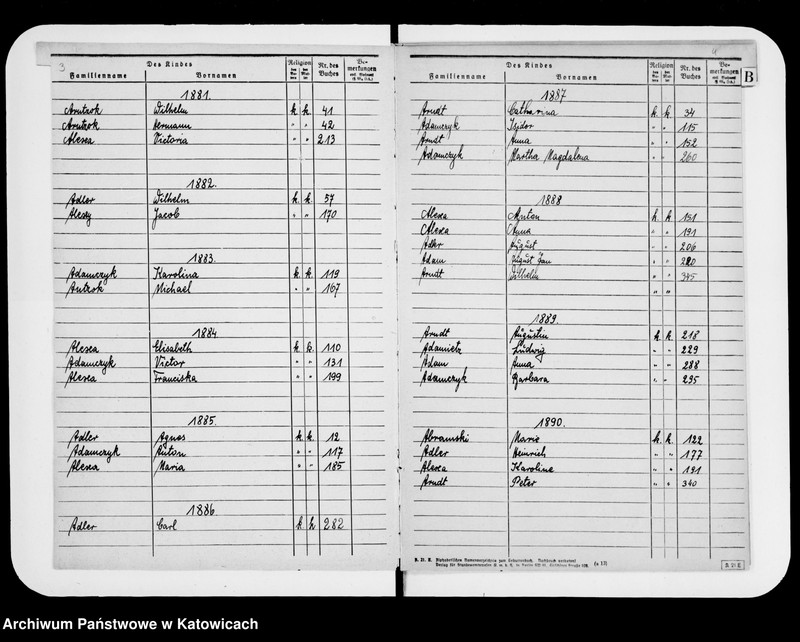 3
Des Kindes
Religion
Nr. des Buches
Be-merkungen
Familienname
Vornamen
1881.
Wilhelm k. k. 41
Hermann " " 42
Alexa Victoria " " 213
1882.
Adler Wilhelm k. k. 57
Jacob " " 170
1883.
Adamczyk Karolina k. k. 119
Michael " " 167
1884.
Alexa Elisabeth k. k. 110
Adamczyk Victor " " 131
Alexa Franciska " " 199
1885.
Adler Agnes k. k. 12
Adamczyk Anton " " 117
Alexa Maria " " 185
1886.
Adler Carl k. k 282
4
Des Kindes
Religion
Nr. des Buches
Be-merkungen
Familienname
Vornamen
B
1887
Arndt Catharina k. k. 34
Adamczyk Isydor " " 115
Arndt Anna " " 152
Adamczyk Martha Magdalena " " 260
1888
Alexa Anton k. k 151
Alexa Anna " " 191
Adler August " " 206
Adam August Jan " "
Arndt Wilhelm " " 345
" "
1889.
Arndt Augustin k. k. 218
Adamietz Ludwig " " 229
Adam Anna " " 288
Adamczyk Barbara " " 295
1890.
Abramski Marie k. k. 122
Adler Heinrich " " 177
Alexa Karoline " " 191
Arndt Peter " " 340
B 21 E
Archiwum Państwowe w Katowicach